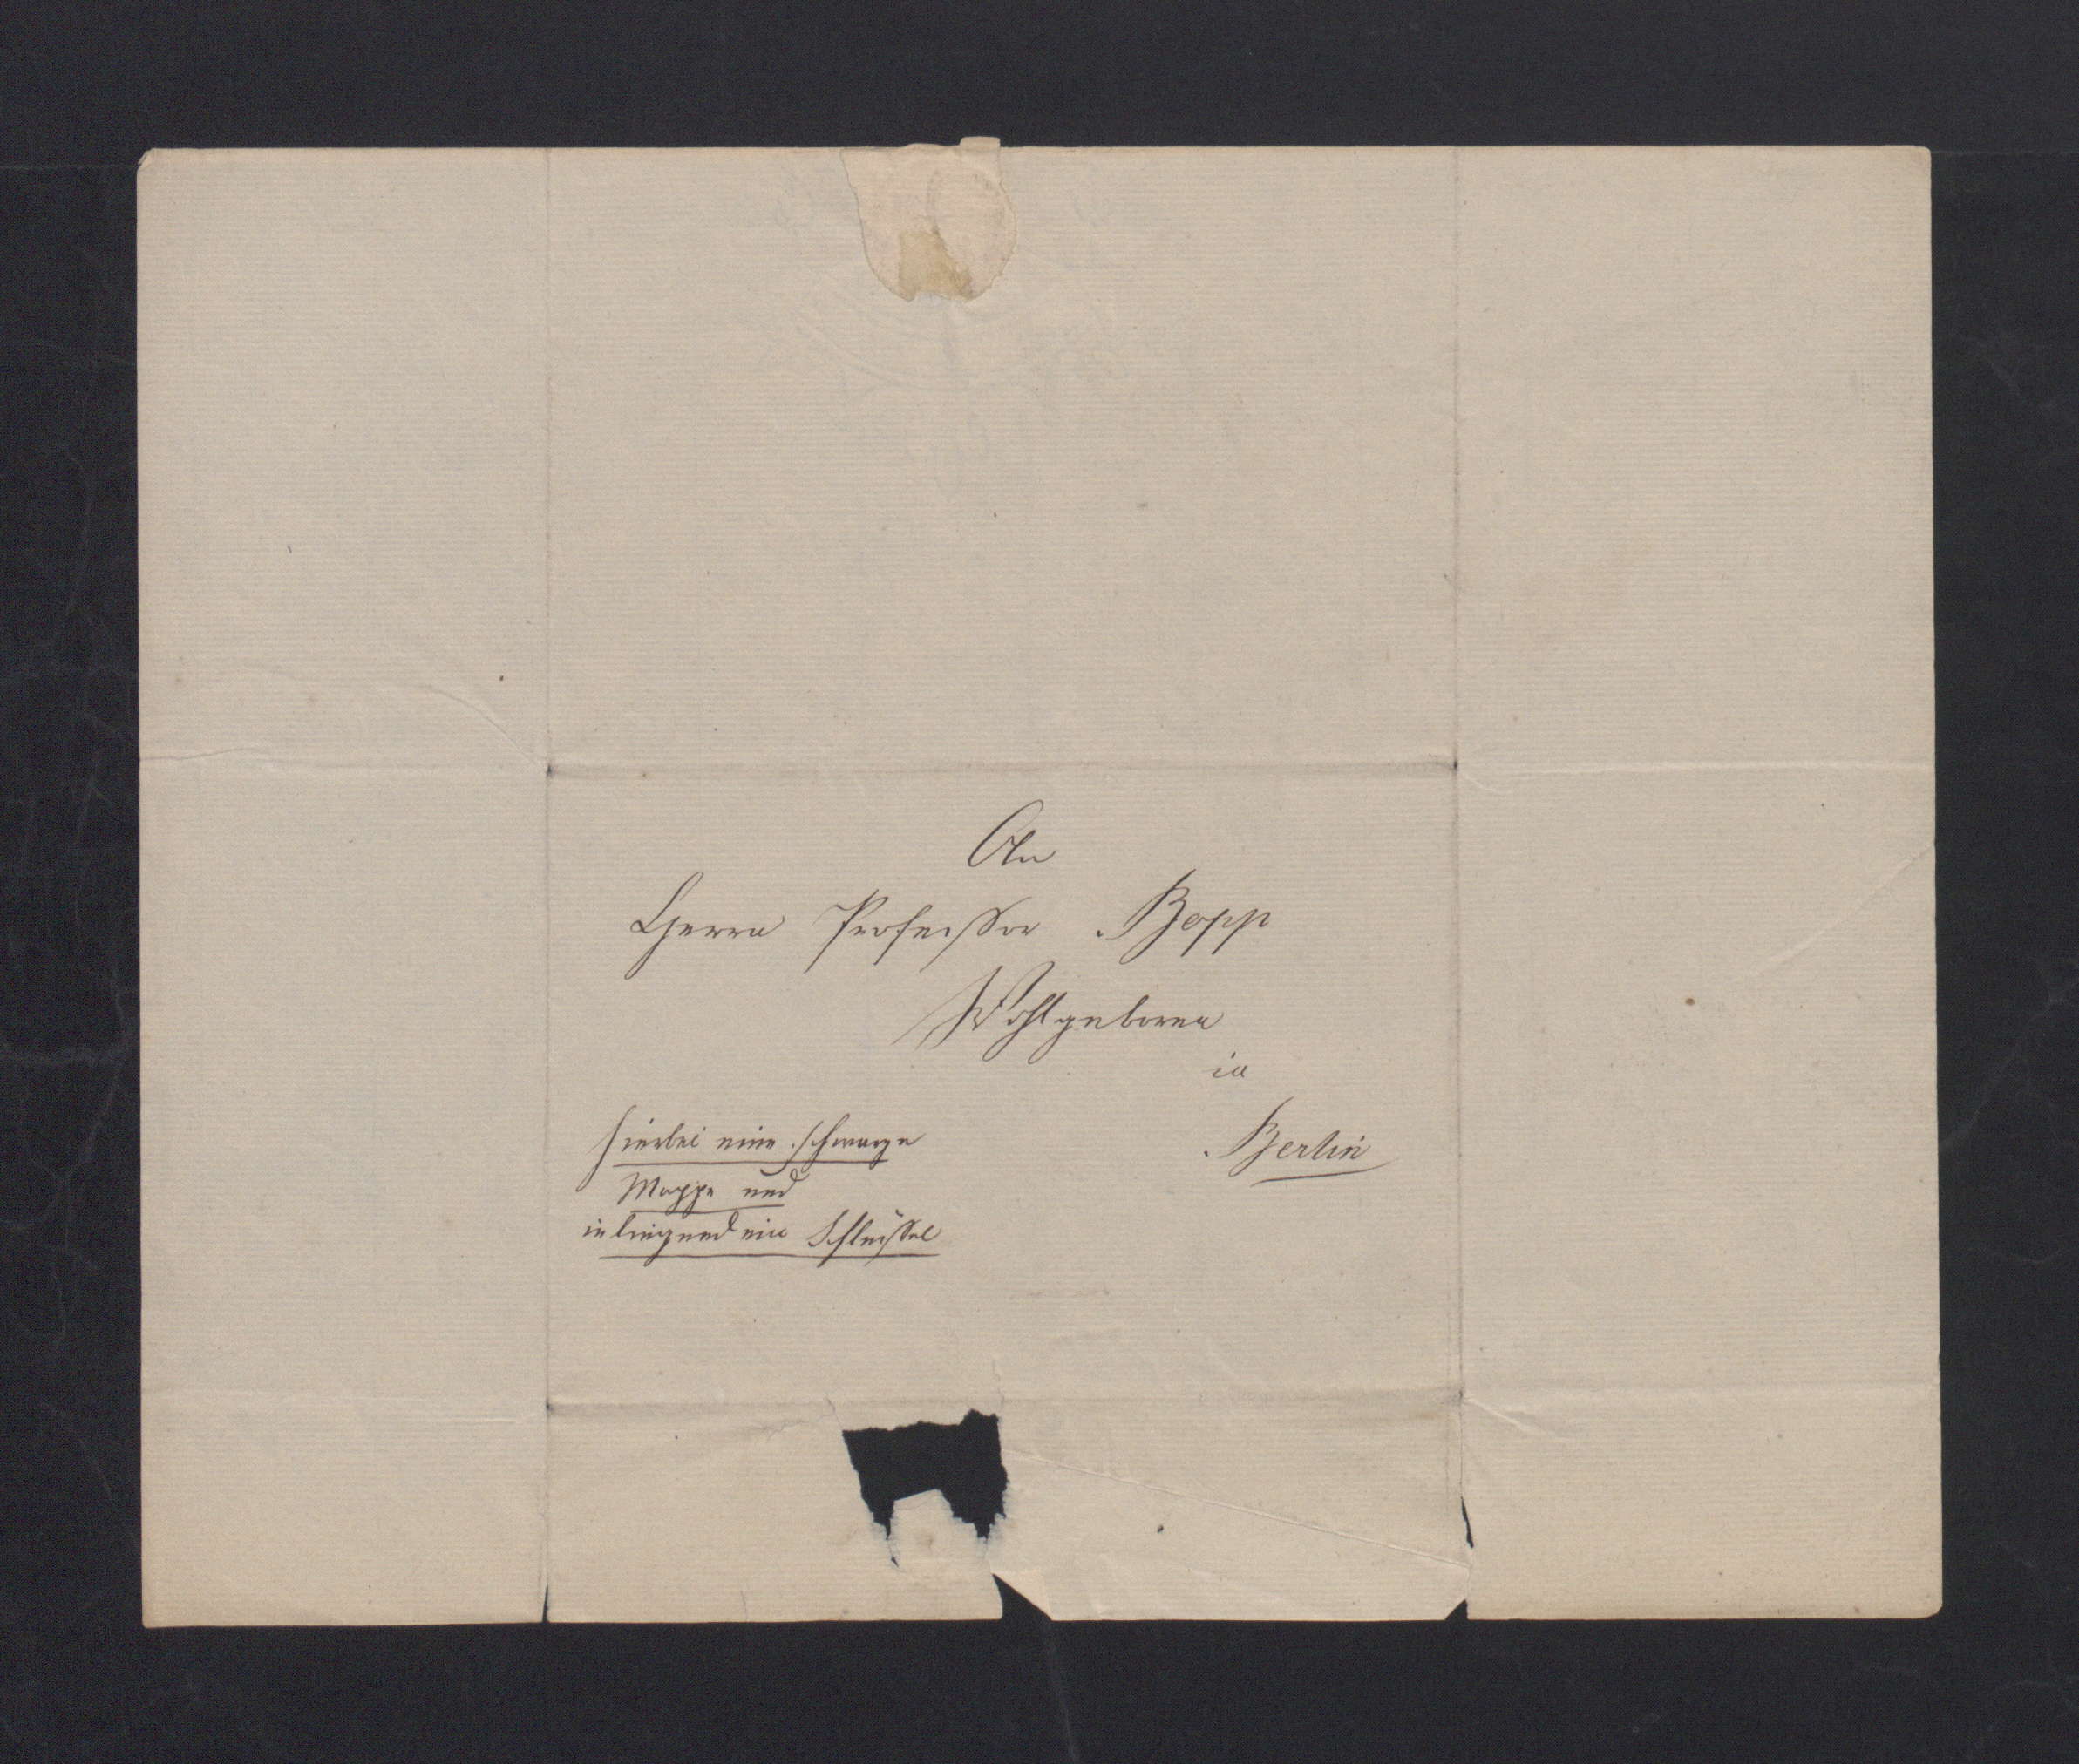 An
Herrn Professor Bopp
Wohlgeboren
in
Berlin
hierbei eine schwarze
Mappe und
inliegend ein Schlüssel